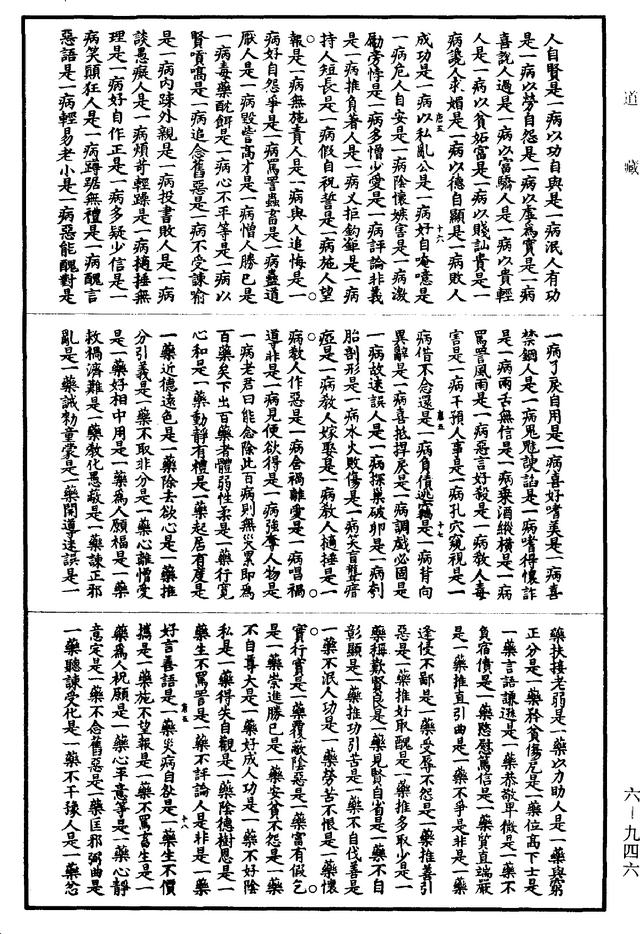 道藏
人自賢是一病以功自與是一病泯人有功
是一病以勞自怨是一病以虛為實是一病
喜說人過是一病以富驕人是一病以貴輕
人是一病以貧妬富是一病以賤訕貴是一
病讒人求媚是一病以德自顯是一病敗人
成功是一病以私亂公是一病好自唵噫是
一病危人自安是一病陰懷嫉害是一病激
勵旁悖是一病多憎少愛是一病評論非義
是一病推負著人是一病又拒鈎錍是一病
持人短長是一病假自祝誓是一病施人望
報是一病無施責人是一病與人追悔是一
病好自怨爭是一病罵詈蟲畜是一病蠱道
厭人是一病毀訾高才是一病憎人勝己是
一病毒藥酖餌是一病心不平等是一病以
賢嗃是一病追念舊惡是一病不受諫喻
是一病內踈外親是一病投書敗人是一病
談愚癡人是一病煩苛輕躁是一病擿捶無
理是一病好自作正是一病多疑少信是一
病笑顛狂人是一病蹲踞無禮是一病醜言
惡語是一病輕易老小是一病惡能醜對是
一病了戾自用是一病喜好嗜美是一病喜
禁錮人是一病鬼魀諛諂是一病嗜得懷詐
是一病兩舌無信是一病乘酒縱橫是一病
罵詈風雨是一病惡言好殺是一病教人毒
害是一病干預人事是一病孔穴窺視是一
病借不念還是一病負債逃竊是一病背向
異辭是一病喜抵捍戾是一病調戲必固是
一病故迷誤人是一病探巢破卵是一病刳
胎剖形是一病水火敗傷是一病笑盲聾瘖
瘂是一病教人嫁娶是一病教人擿捶是一
病教人作惡是一病含禍離愛是一病唱禍
導非是一病見便欲得是一病強奪人物是
一病老君曰能念除此百病則無災累即為
百藥矣下出百藥者體弱性柔是一藥行寬
心和是一藥動靜有禮是一藥起居有度是
一藥近德遠色是一藥除去欲心是一藥推
分引義是一藥不取非分是一藥心離憎愛
是一藥好相中用是一藥為人願福是一藥
救禍濟難是一藥教化愚蔽是一藥諫正邪
亂是一藥誡勑童蒙是一藥開導迷誤是一
藥扶接老弱是一藥以力助人是一藥與窮
正分是一藥矜貧傷厄是一藥位高下士是
一藥言語謙遜是一藥恭敬卑微是一藥不
負宿債是一藥愍慰篤信是一藥質直端嚴
是一藥推直引曲是一藥不爭是非是一藥
逢侵不鄙是一藥受辱不怨是一藥推善引
惡是一藥推好取醜是一藥推多取少是一
藥稱歎賢良是一藥見賢自省是一藥不自
彰顯是一藥推功引苦是一藥不自伐善是
一藥不泯人功是一藥勞苦不恨是一藥懷
實行實是一藥覆蔽陰惡是一藥富有假乞
是一藥崇進勝己是一藥安貧不怨是一藥
不自尊大是一藥好成人功是一藥不好陰
私是一藥得失自觀是一藥陰德樹恩是一
藥生不罵詈是一藥不評論人是一藥
好言善語是一藥災病自欲是一藥生不價
攜是一藥施不望報是一藥不罵畜生是一
藥為人祝願是一藥心平意等是一藥心靜
意定是一藥不念舊惡是一藥匡邪弼曲是
一藥聽諫受化是一藥不干豫人是一藥忿
六—九四六